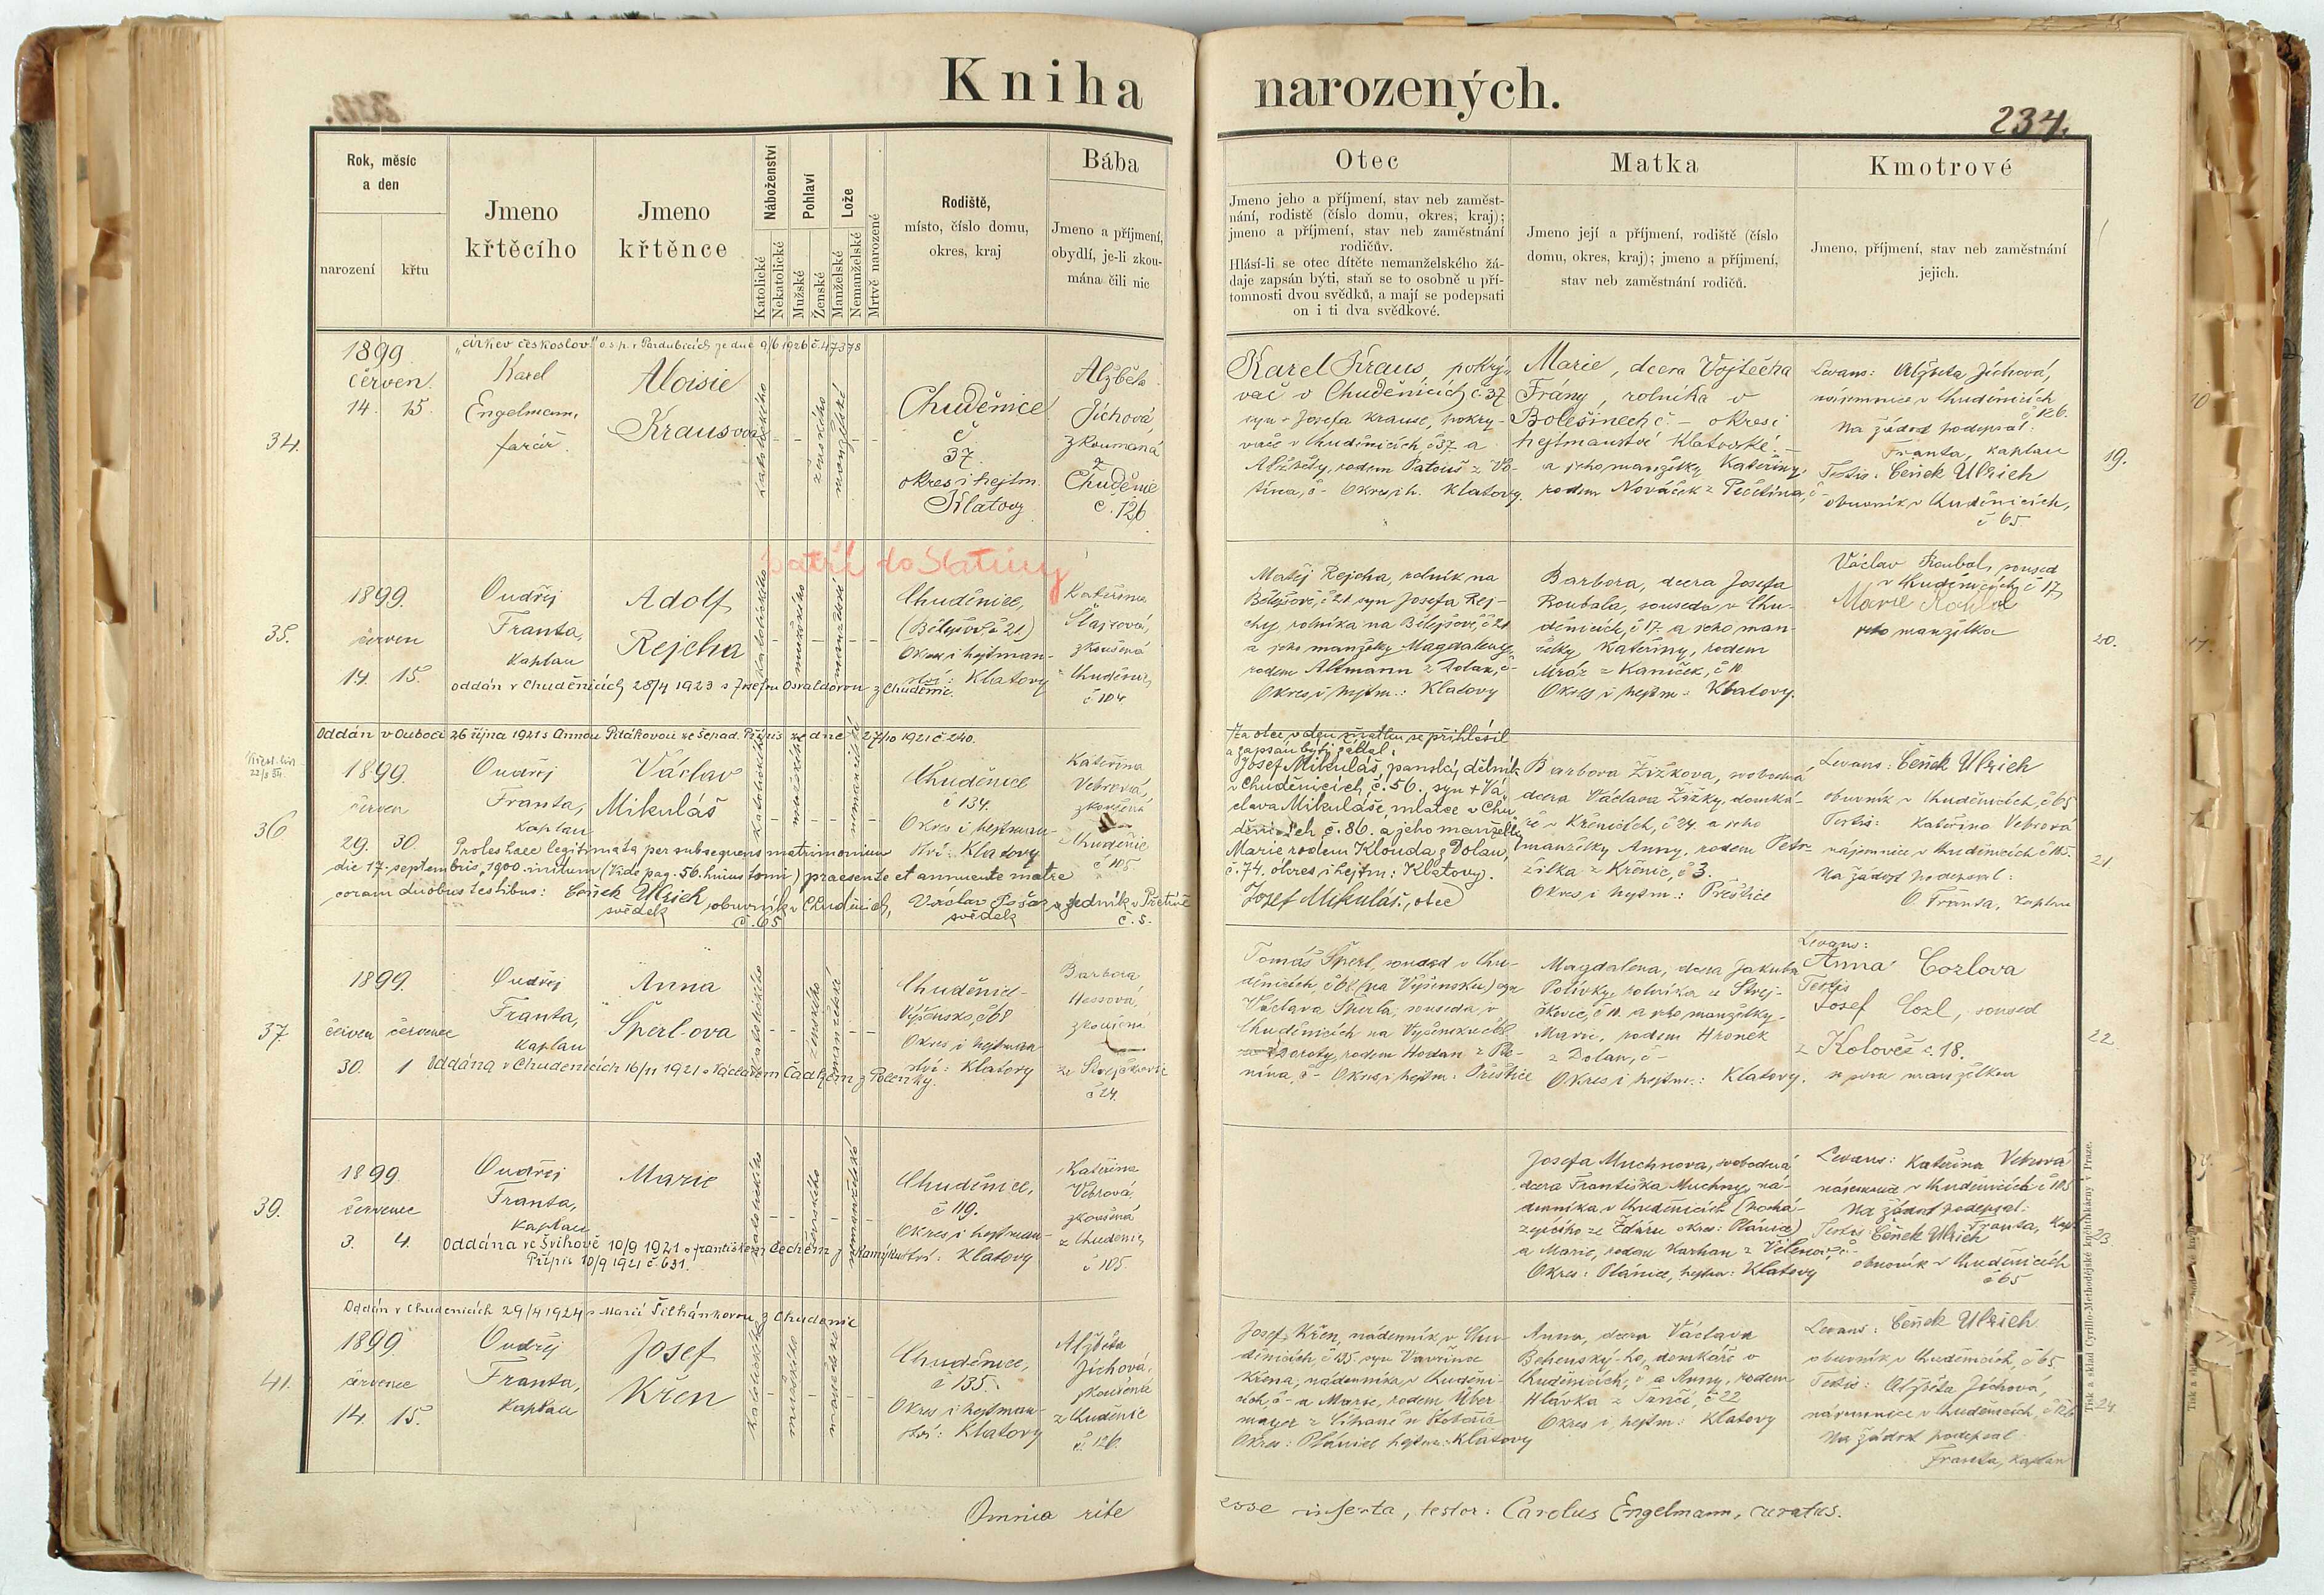 Kniha narozených.
234.
Rok, měsíc
a den
narození
křtu
Jmeno
křtěcího
Jmeno
křtěnce
Náboženství
Katolické
Nekatolické
Pohlaví
Mužské
Ženské
Lože
Manželské
Nemanželské
Mrtvě narozené
Rodiště,
místo, číslo domu,
okres, kraj
Bába
Jmeno a příjmení,
obydlí, je-li zkou-
mána čili nic
Otec
Jmeno jeho a příjmení, stav neb zaměst-
nání, rodistě (číslo domu, okres, kraj);
jmeno a příjmení, stav neb zaměstnání
rodičův.
Hlásí-li se otec dítěte nemanželského žá-
daje zapsán býti, staň se to osobně u pří-
tomnosti dvou svědků, a mají se podepsati
on i ti dva svědkové.
Matka
Jmeno její a příjmení, rodiště (číslo
domu, okres, kraj); jmeno a příjmení,
stav neb zaměstnání rodičů.
Kmotrové
Jmeno, příjmení, stav neb zaměstnání
jejich.
34.
1899
červen.
14. 15.
Karel
Engelmann,
farář
Aloisie
Krausova
katolického
ženského
manželské
Chuděnice
č
37
okres i hejtm.
Klatovy
Alžběta
Jíchová,
zkoumaná
z
Chuděnic
č. 126
Karel Kraus, pokrý-
vač v Chuděnicích č. 37
syn Josefa Krause, pokrý-
vače v Chuděnicích, č 37 a
Alžběty, rodem Patouš z
Okres i h. Klatovy.
Marie, dcera Vojtěcha
Frány, rolníka v
Bolešinech č. – okresi
hejtmanství Klatovské –
a jeho manželky Kateřiny,
rodem Nováček z
Levans: Alžběta Jíchová,
nájemnice v Chuděnicích
č 126.
Na žádost podepsal:
Franta, kaplan
Testis: Čeněk Ulrich
obuvník v Chuděnicích,
č 65
19.
35.
patří do Slatiny
1899.
červen
14. 15.
Ondřej
Franta,
kaplan
Adolf
Rejcha
katolického
mužského
manželské
Chuděnice,
(Bělejšov č 21)
Okres i hejtman-
ství: Klatovy
Kateřina
zkoušená
č 104.
oddán v Chuděnicích 28/4 1923 s Osvaldovou z Chuděnic.
Matěj Rejcha, rolník na
Bělejšově, č 21 syn Josefa Rej-
chy rolníka na Bělejšově, č 21
a jeho manželky Magdaleny,
rodem Altmann z Dolan, č –
Okres i hejtm.: Klatovy
Barbora, dcera Josefa
Roubala, souseda v Chu-
děnicích, č 17 a jeho man-
želky, Kateřiny, rodem
Mráz z Kaniček, č 10
Okres i hejtm.: Klatovy.
Václav Roubal, soused
v Chuděnicích č 17
Marie
jeho manželka
20.
36
Oddán v Ouboči 26 října 1921 s Annou ze dne 27/10 1921 č 240.
1899.
červen
29. 30.
Ondřej
Franta,
kaplan
Václav
Mikuláš
katolického
mužského
nemanželské
Chuděnice
č 134.
Okres i hejtman-
ství: Klatovy
Kateřina
Vebrová,
zkoušená
Chuděnic
č 105
Proles haec legitimata per subsequens matrimonium
die 17. septembris 1900 initum (Vide pag. 56. huius tomi) praesente et annuente matre
coram duobus testibus: Čeněk Ulrich, obuvník v Chuděnicích,
svědek
č. 65
svědek
č. 5.
Za otce v den se přihlásil
a zapsán býti žádal:
Josef Mikuláš, panský dělník
v Chuděnicích, č. 56. syn † Vá-
clava Mikuláše, mlatce v Chu-
děnicích č. 86. a jeho manželky
Marie rodem Klouda z Dolan,
č. 74. okres i hejtm: Klatovy.
Josef Mikuláš, otec
Barbora Žižkova, svobodná
dcera Václava Žižky, domká-
ře v Křenicích, č 24. a jeho
manželky Anny, rodem Petr-
žilka z Křenic, č 3.
Okres i hejtm: Přeštice
Levans: Čeněk Ulrich
obuvník v Chuděnicích, č 65
Testis: Kateřina Vebrová
nájemnice v Chuděnicích č 105.
Na žádost podepsal:
O. Franta, kaplan
21.
37.
1899.
červen červenec
30. 1
Ondřej
Franta,
kaplan
Anna
Šperl-ova
katolického
ženského
manželské
Chuděnice-
Výšensko, č 68
Okres i hejtman
ství: Klatovy
Barbora
Hessová,
zkoušená
č 24.
Oddána v Chuděnicích 16/11 1921 s Václavem z Poleňky.
Tomáš Šperl, soused v Chu-
děnicích, č 68 (na Výšensku) syn
Václava Šperla, souseda v
Chuděnicích na Výšensku č 68
Doroty, rodem Hodan z
Okres i hejtm: Přeštice
Magdalena, dcera Jakuba
Polívky, rolníka ze Strej-
čkovic, č 10. a jeho manželky
Marie, rodem Hronek
z Dolan, č –
Okres i hejtm.: Klatovy.
Levans:
Anna Cozlova
Testis
Josef Cozl, soused
z Koloveč č. 18.
se svou manželkou
22.
39.
1899
červenec
3. 4.
Ondřej
Franta,
kaplan
Marie
katolického
ženského
nemanželské
Chuděnice,
č 119.
Okres i hejtman-
ství: Klatovy
Kateřina
Vebrová,
zkoušená
z Chuděnic,
č 105.
Oddána ve Švihově 10/9 1921 s Františkem Čechem z
Přípis 10/9 1921 č. 631.
Josefa Muchnova, svobodná
dcera Františka Muchny, ná-
denníka v Chuděnicích (pochá-
zejícího ze Ždáru okres: Plánice)
a Marie, rodem Karban z
Okres: Plánice, hejtm: Klatovy
Levans: Kateřina Vebrová
nájemnice v Chuděnicích č 105
Na žádost podepsal:
Franta, kapl.
Testis Čeněk Ulrich
obuvník v Chuděnicích
č 65
23
41.
Oddán v Chudenicích 29/4 1924 s Marií z Chudenic
1899
červenec
14. 15.
Ondřej
Franta,
Kaplan
Josef
Křen
katolického
mužského
manželské
Chuděnice,
č 135.
Okres i hejtman-
ství: Klatovy
Alžběta
Jíchová,
zkoušená
z Chuděnic
č 126.
Josef Křen, nádenník v Chu-
děnicích, č 135. syn Vavřince
Křena, nádenníka v Chuděni-
cích, č – a Marie, rodem Uber-
Okres: Plánice hejtm: Klatovy
Anna, dcera Václava
Behenský-ho, domkáře v
Chuděnicích, č a Anny, rodem
Hlávka z č 22
Okres i hejtm: Klatovy
Levans: Čeněk Ulrich
obuvník v Chuděnicích, č 65
Testis: Alžběta Jíchová,
nájemnice v Chuděnicích, č 126
Na žádost podepsal:
Franta, kaplan
24.
Omnia rite esse inserta, testor: Carolus Engelmann, curatus.
Tisk a sklad Cyrillo-Methodějské knihtiskárny v Praze.